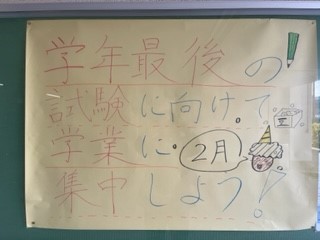 学年最後の
試験に向けて
学業に
2月
集中しよう!